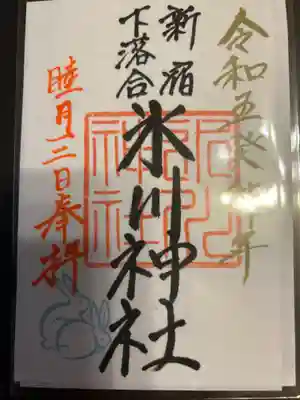 令和五癸卯年
新宿
下落合
氷川神社
睦月二日奉拝